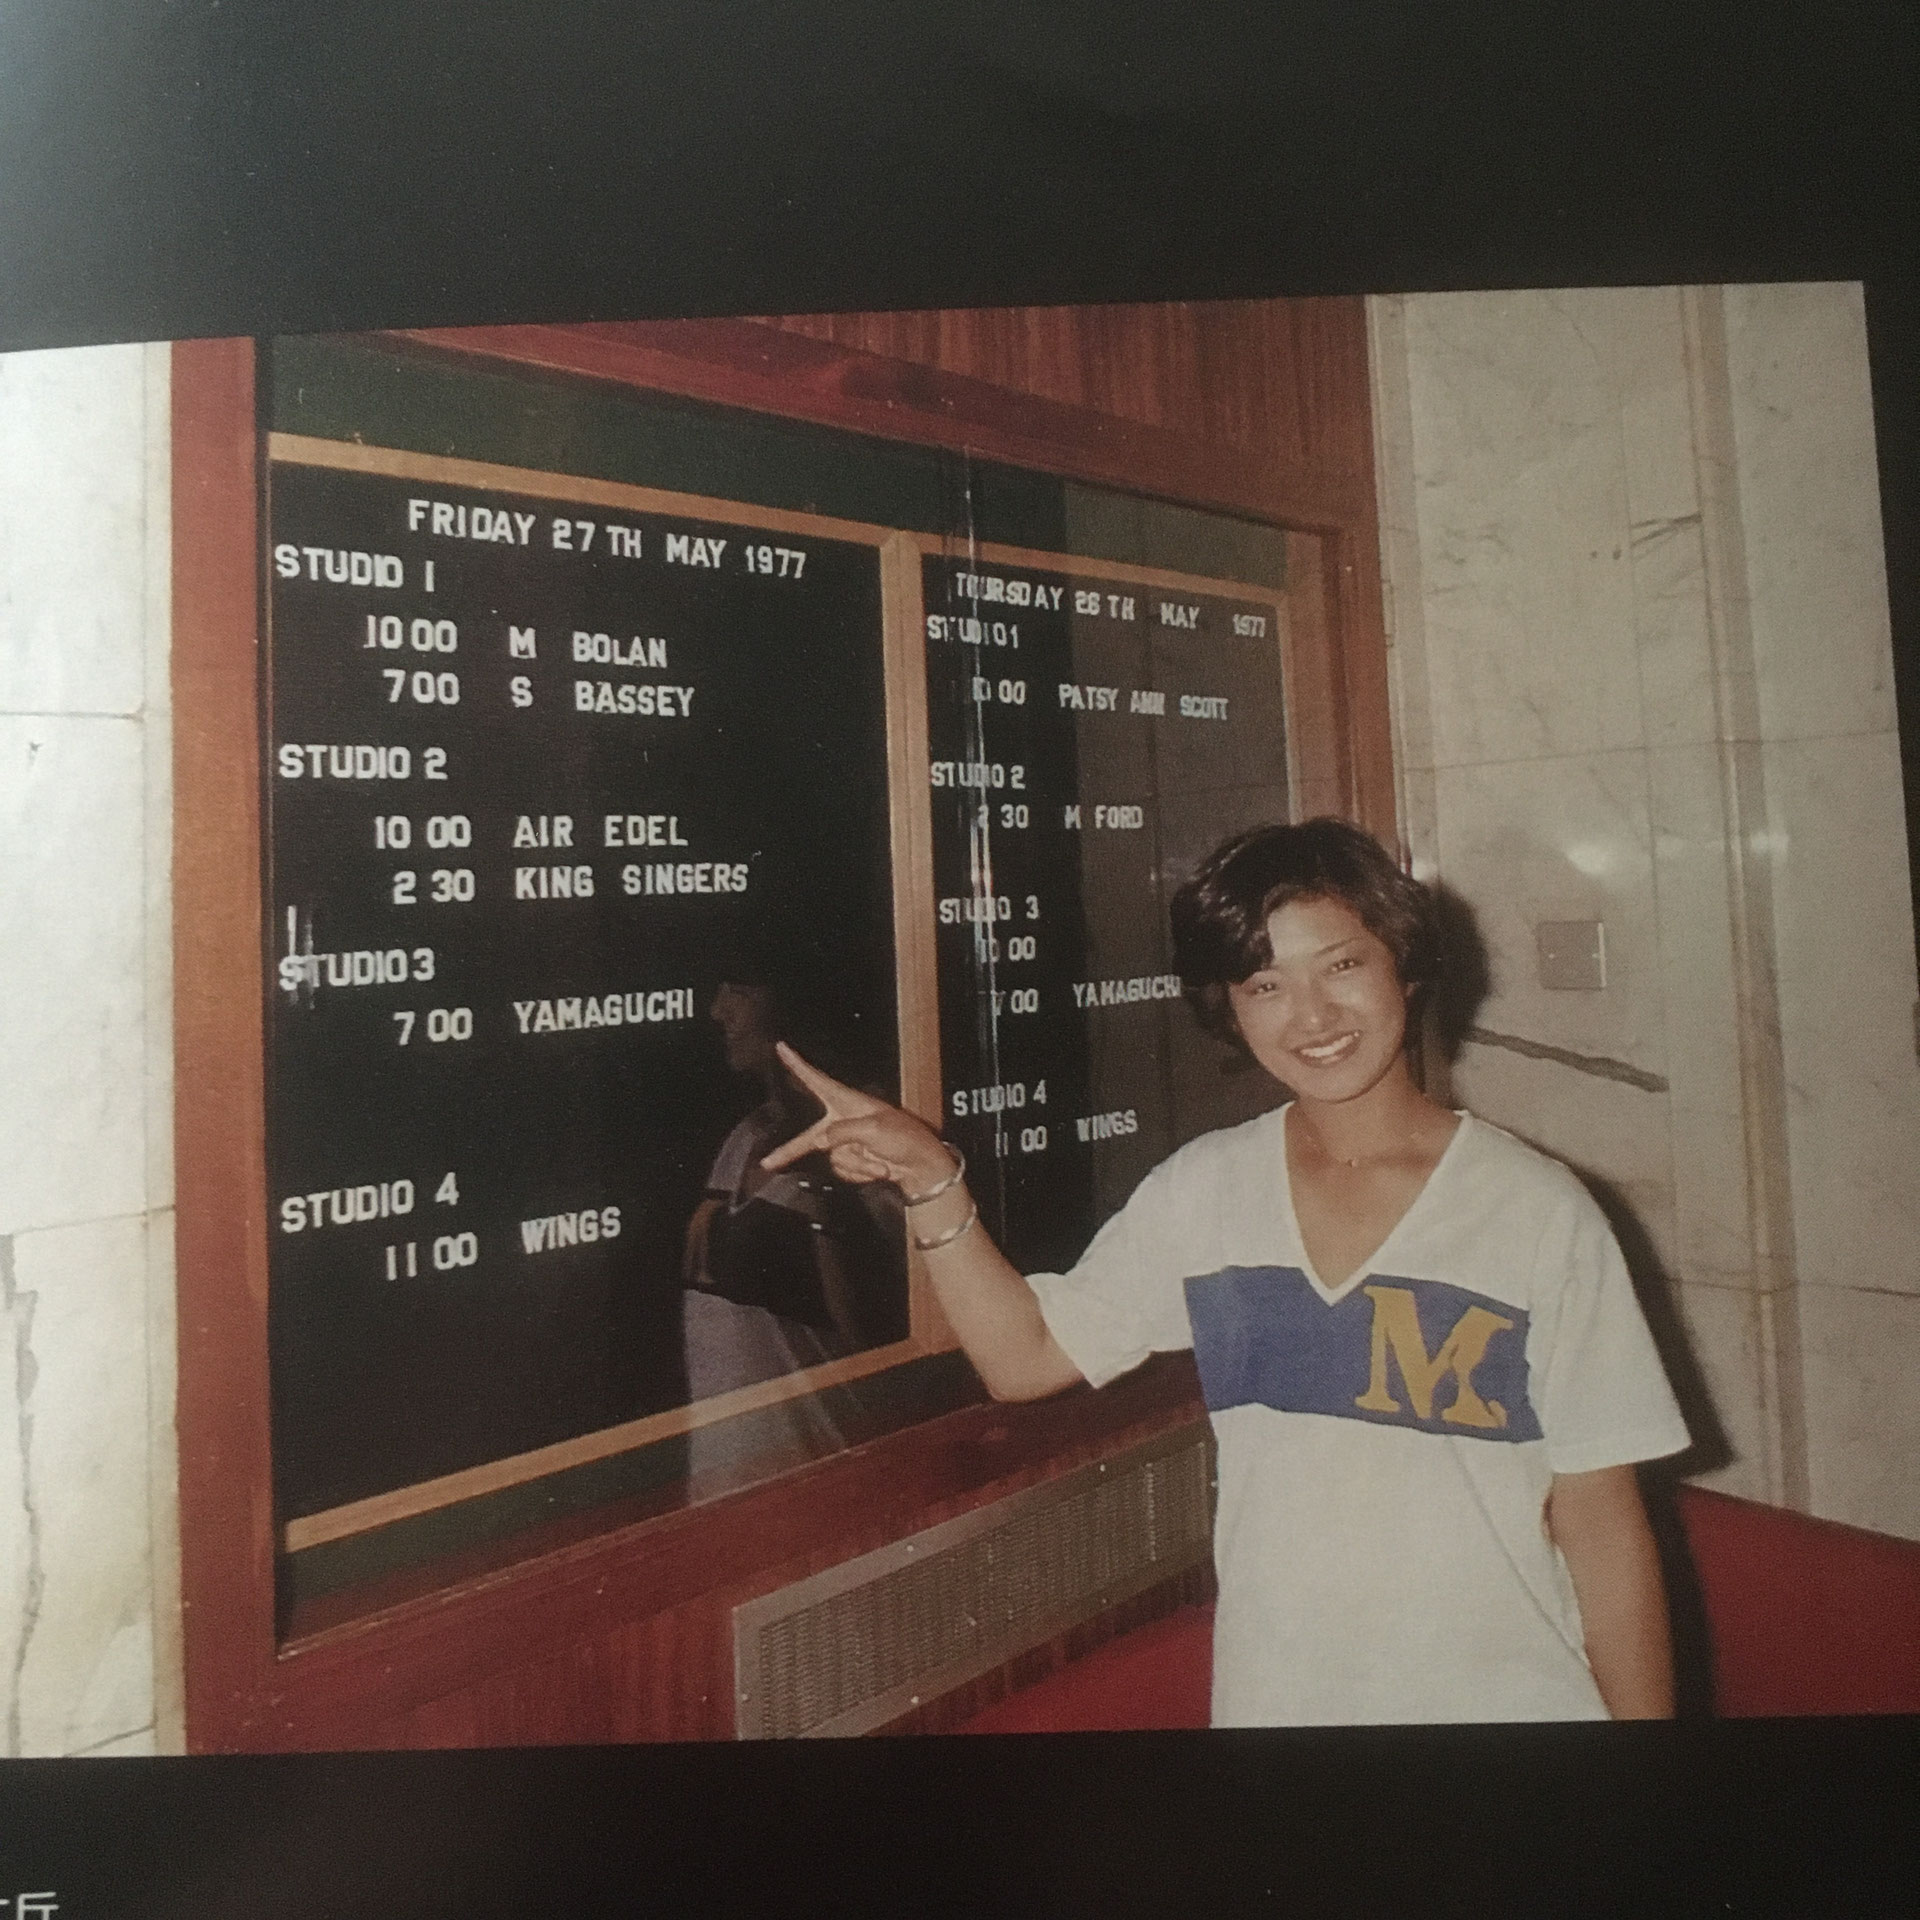 FRIDAY 27TH MAY 1977
STUDIO 1
10 00 M BOLAN
7 00 S BASSEY
STUDIO 2
10 00 AIR EDEL
2 30 KING SINGERS
STUDIO 3
7 00 YAMAGUCHI
STUDIO 4
11 00 WINGS
THURSDAY 26TH MAY 1977
STUDIO 1
10 00 PATSY ANN SCOTT
STUDIO 2
2 30 M FORD
STUDIO 3
10 00
7 00 YAMAGUCHI
STUDIO 4
11 00 WINGS
M